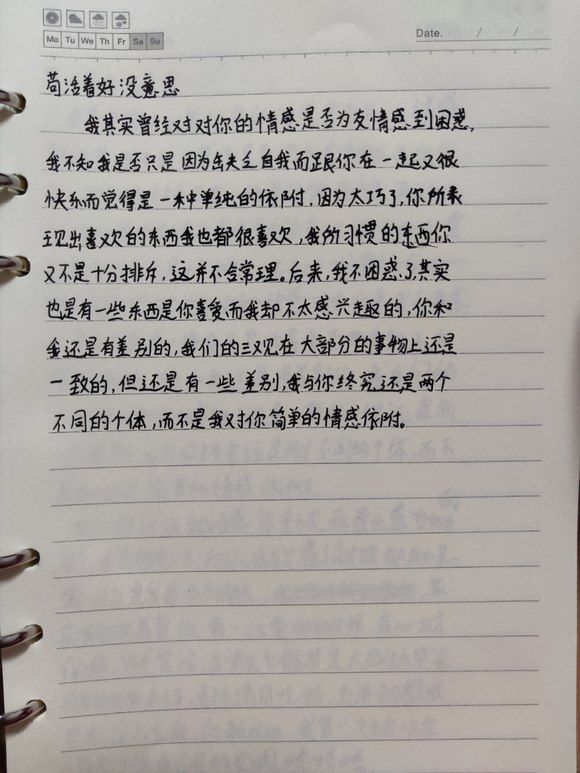 Date. / /
Mo Tu We Th Fr Sa Su
苟活着好没意思
我其实曾经对对你的情感是否为友情感到困惑,
我不知我是否只是因为缺乏自我而跟你在一起又很
快乐而觉得是一种单纯的依附,因为太巧了,你所表
现出喜欢的东西我也都很喜欢,我所习惯的东西你
又不是十分排斥,这并不合常理。后来,我不困惑了,其实
也是有一些东西是你喜爱而我却不太感兴趣的,你和
我还是有差别的,我们的三观在大部分的事物上还是
一致的,但还是有一些差别,我与你终究还是两个
不同的个体,而不是我对你简单的情感依附。